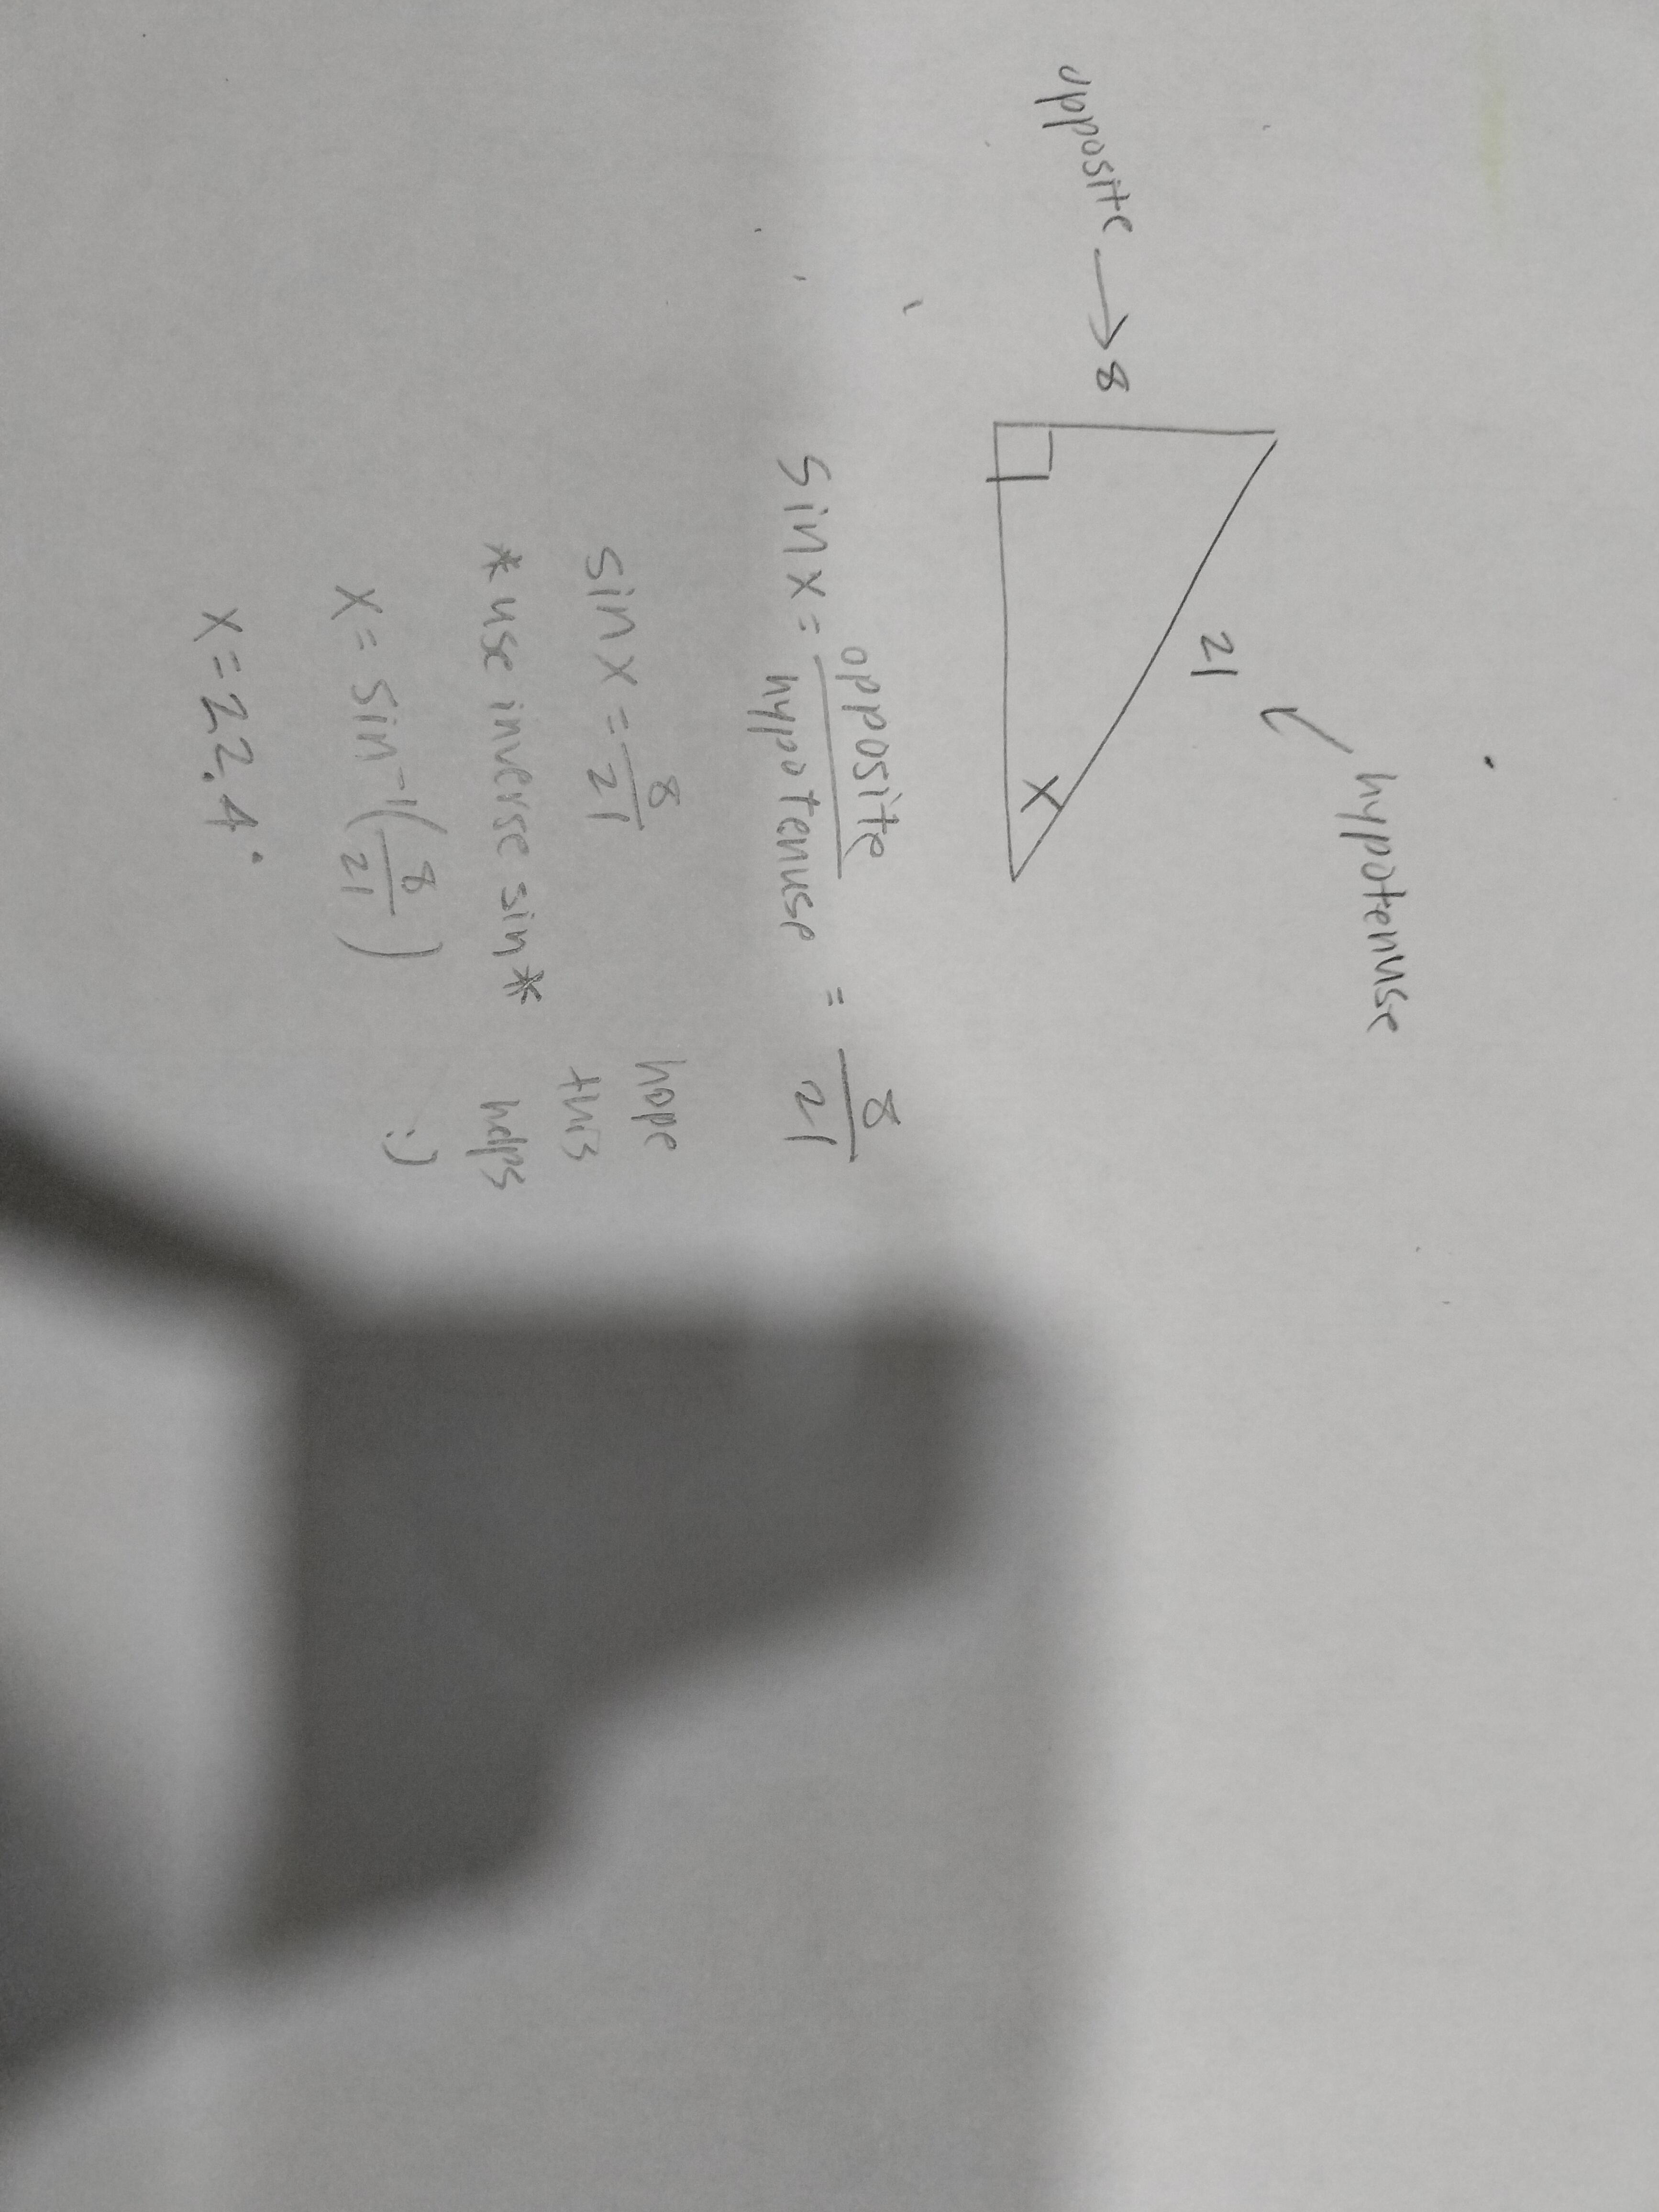 hypotenuse
21
opposite → 8
x
sin x = opposite/hypotenuse = 8/21
sin x = 8/21
*use inverse sin*
x = sin⁻¹(8/21)
x = 22.4°
hope
this
helps
:)